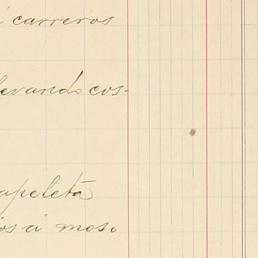 i carreros
levando cos-
apeleta
ios a moso